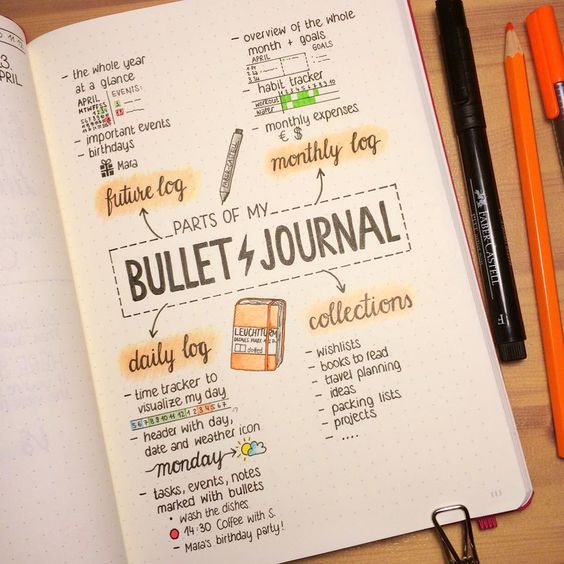 the whole year
at a glance
APRIL EVENTS:
MTWTFSS
- important events
- birthdays
Mara
future log
- overview of the whole
month + goals
APRIL
GOALS
- habit tracker
workout
water
- monthly expenses
€ $
monthly log
FABER CASTELL
PARTS OF MY
BULLET JOURNAL
daily log
- time tracker to
visualize my day
5 6 7 8 9 10 11 12 1 2 3 4 5 6 7
- header with day,
date and weather icon
monday
- tasks, events, notes
marked with bullets
• wash the dishes
14:30 Coffee with S.
- Mara's birthday party!
LEUCHTTURM
dotted
collections
- wishlists
- books to read
- travel planning
- ideas
- packing lists
- projects
- ....
113
3.
APRIL
FABER-CASTELL